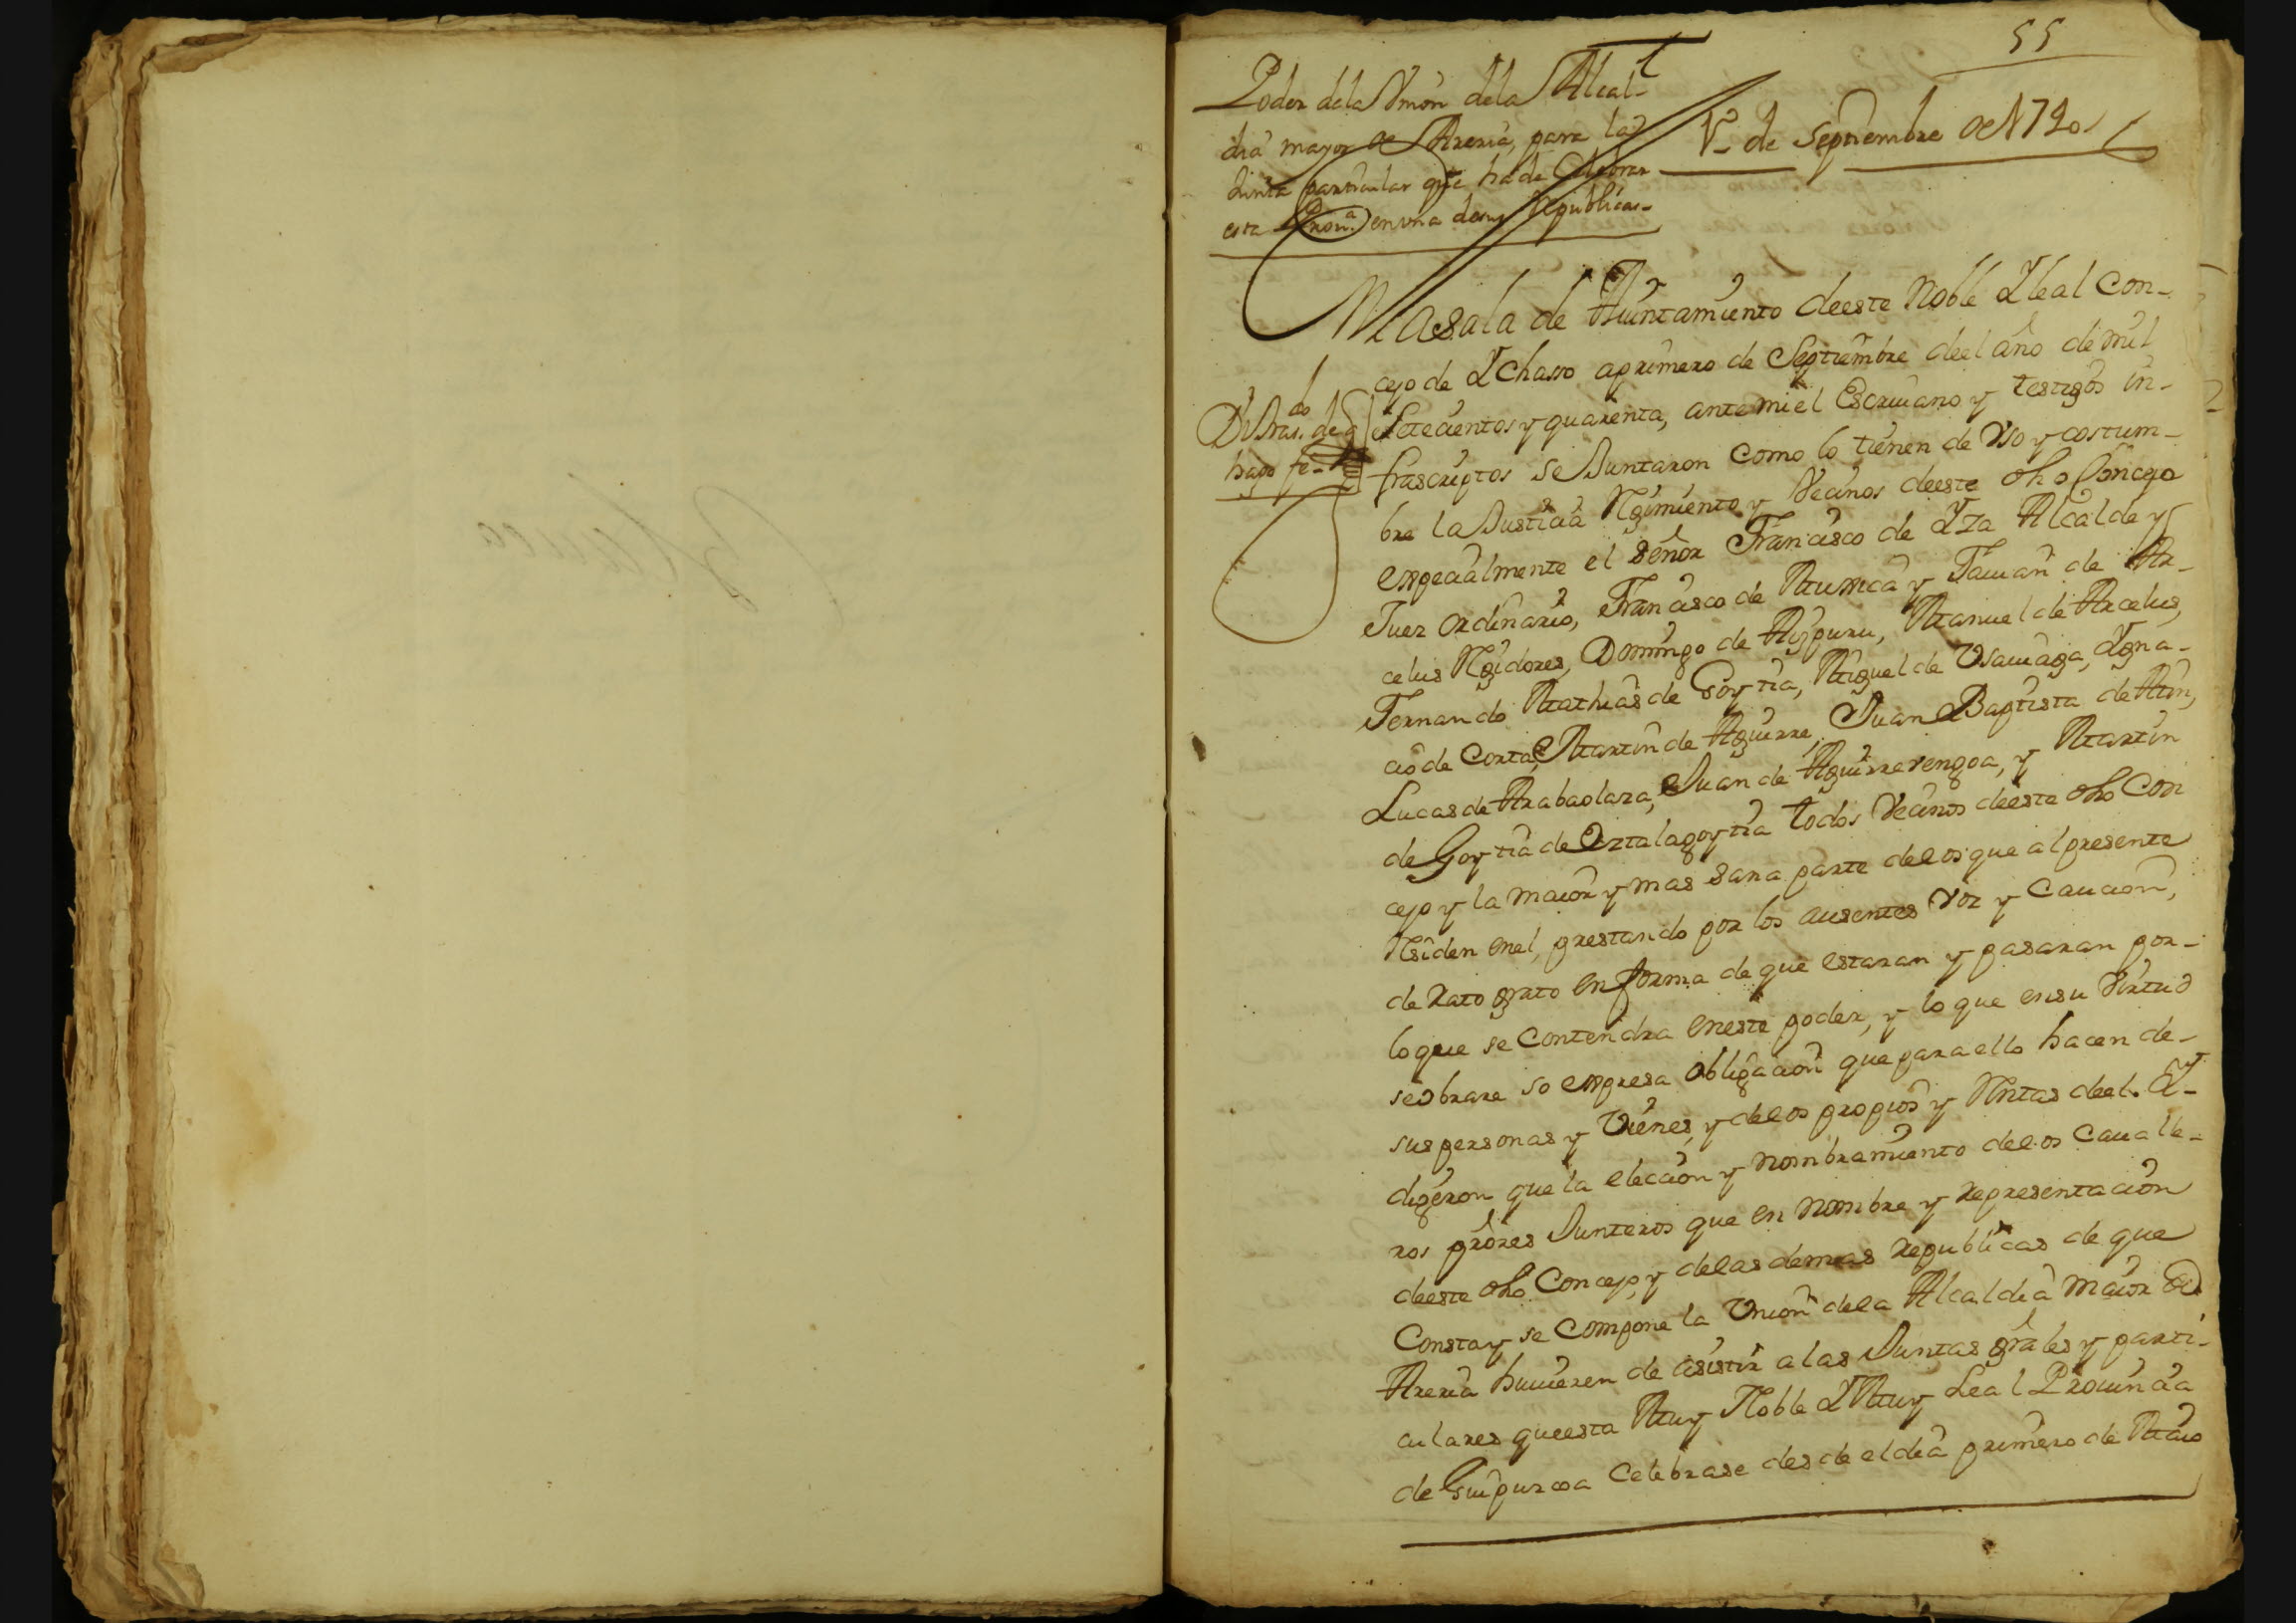 55
Poder dela Vnion dela Alcal-
dia mayor de Areria, para la
Junta particular que ha de Celebrar
esta Prou.ª en vna de sus Republicas-
1º de Septiembre de 1740
En la Sala de Aiuntamiento de este Noble Y leal Con-
cejo de Ychasso a primero de Septiembre de el año de mil
Setecientos y quarenta, ante mi el Escriuano y testigos in-
frascriptos se Juntaron como lo tienen de Vso y costum-
bre la Justicia Regimiento y Vecinos de este dho Concejo
Di tras.do de q
hago fe-
expecialmente el señor Francisco de Yza Alcalde y
Juez ordinario, Francisco de Muxica y Fauian de Ar-
celus Regidores, Domingo de Aizpuru, Manuel de Arcelus,
Fernando Mathias de Goytia, Miguel de Vsauiaga, Ygna-
cio de Corta, Martin de Aguirre, Juan Baptista de Atin,
Lucas de Arabaolaza, Juan de Aguirrerengoa, y Martin
de Goytia de Oztalagoytia todos Vecinos de este dho Con
cejo y la maior y mas sana parte de los que al presente
Residen en el, prestando por los ausentes voz y Caucion,
de rato grato en forma de que estaran y pasaran por-
lo que se Contendra en este poder, y lo que en su Virtud
se obrare so expresa obligacion que para ello hacen de-
sus personas y Vienes, y de los propios y Rentas de el. Y-
dixeron que la eleccion y nombramiento de los Caualle-
ros prôres Junteros que en nombre y representacion
de este dho Concejo, y de las demas republicas de que
Consta y se Compone la Vnion de la Alcaldia maior de
Areria huuieren de asistir a las Juntas grâles y parti-
culares que esta Muy Noble Y Muy Leal Prouincia
de Guipuzcoa Celebrase desde el dia primero de Maio